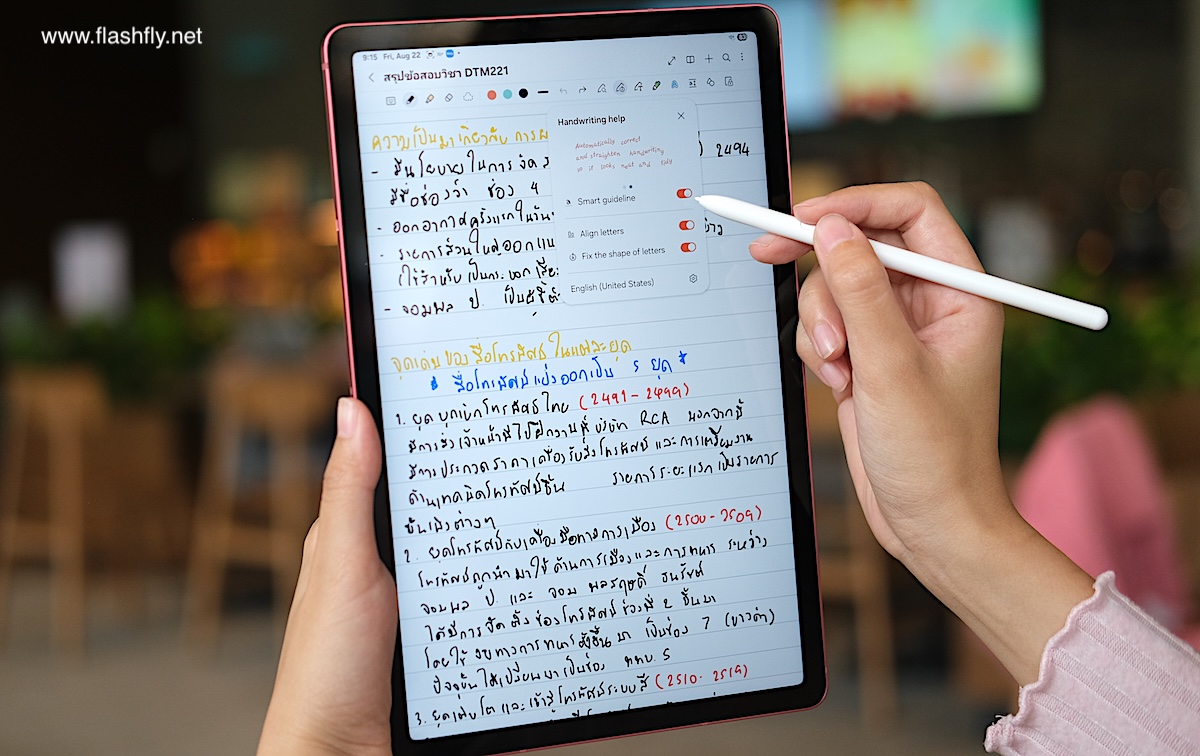 www.flashfly.net
9:15 Fri, Aug 22
สรุปข้อสอบวิชา DTM221
Handwriting help
Automatically correct
and straighten handwriting
so it looks neat and tidy
Smart guideline
Align letters
Fix the shape of letters
English (United States)
ความเป็นมาเกี่ยวกับ การ
- มีนโยบายในการ จัด ) 2494
มีชื่อช่องว่า ช่อง 4
- ออกอากาศครั้งแรกในวัน
- รายการส่วนใหญ่ออกแบบ
ใช้สำหรับ เป็นกระบอกเสียง
- จอมพล ป. เป็นผู้ชี้
จุดเด่นของสื่อโทรทัศน์ ในแต่ละยุค
* สื่อโทรทัศน์แบ่งออกเป็น 5 ยุค *
1. ยุคบุกเบิกโทรทัศน์ไทย (2491 - 2499)
มีการส่งเจ้าหน้าที่ไปฝึกงานที่บริษัท RCA นอกจากนี้
มีการประกวดราคาเครื่องรับส่งโทรทัศน์ และการเตรียมงาน
ด้านเทคนิคโทรทัศน์ขึ้น รายการระยะแรกเป็นรายการ
บันเทิงต่างๆ
2. ยุคโทรทัศน์กับเครื่องมือทางการเมือง (2500 - 2509)
โทรทัศน์ถูกนำมาใช้ด้านการเมืองและการทหาร ระหว่าง
จอมพล ป. และ จอมพลสฤษดิ์ ธนรัชต์
ได้มีการจัดตั้งช่องโทรทัศน์ช่องที่ 2 ขึ้นมา
โดยใช้ ทางการทหารตั้งขึ้นมา เป็นช่อง 7 (ขาวดำ)
ปัจจุบันได้เปลี่ยนมาเป็นช่อง ททบ. 5
3. ยุคเติบโต และเข้าสู่โทรทัศน์ระบบสี (2510 - 2519)